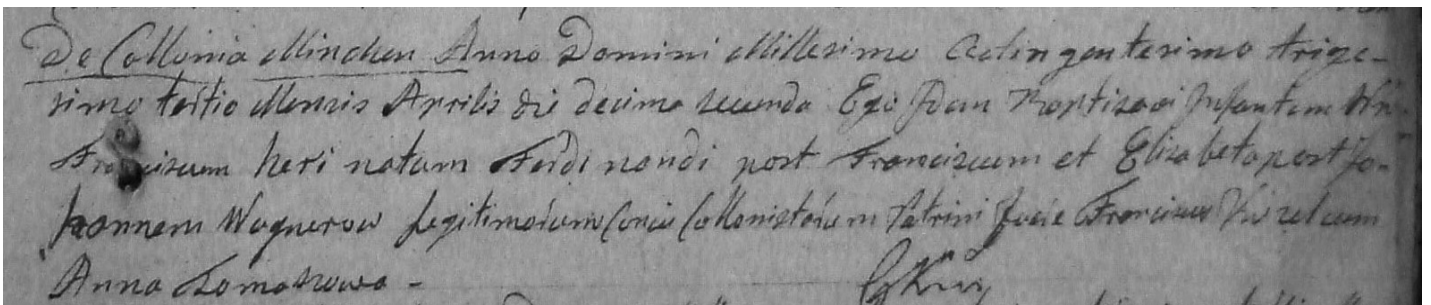 De Collonia Minchen Anno Domini Millesimo Octingentesimo trige-
simo tertio Mensis Aprilis die decima secunda Ego Idem Baptisavi Infantem
Franciscum heri natum Ferdinandi post Franciscum et Elizabeta post Jo-
hannem Wagnerow Legitimorum Collonistarum Patrini Franciscus cum
Anna Tomaszowa -